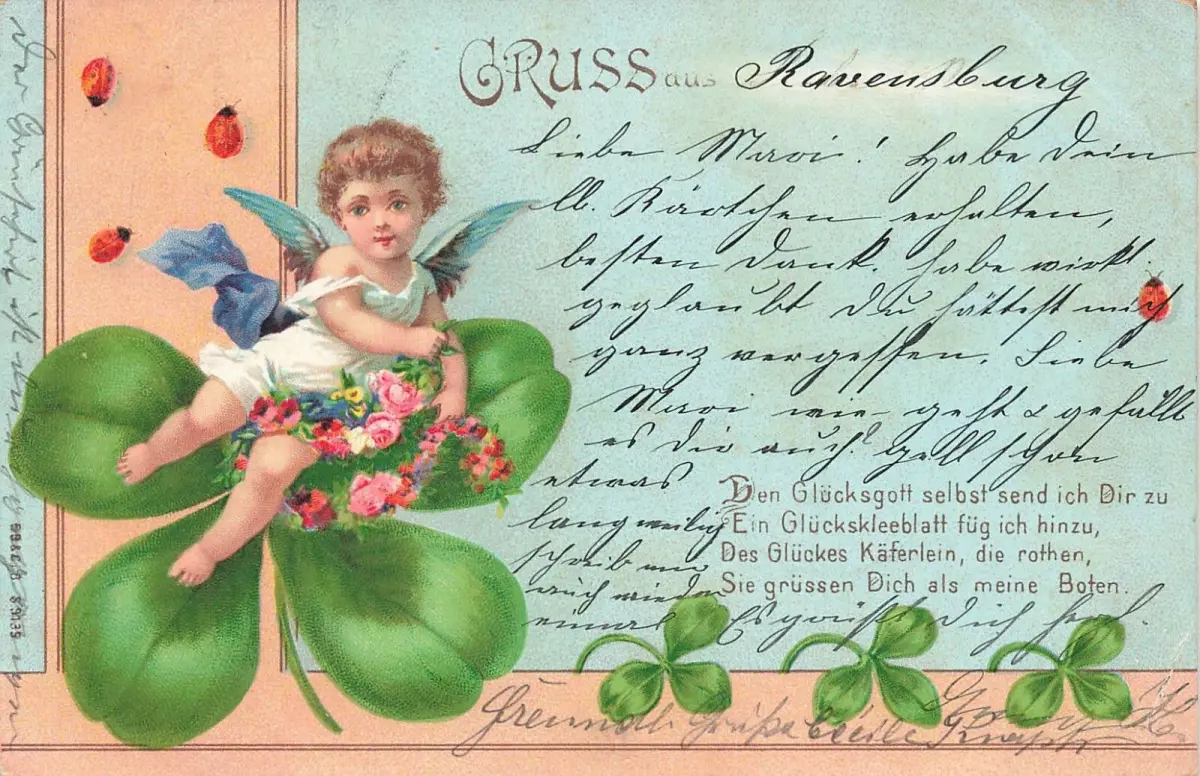 GRUSS aus Ravensburg
Liebe Mari! Habe Dein
lb. Kärtchen erhalten,
besten Dank. Habe wirkl.
geglaubt Du hättest mich
ganz vergessen. Liebe
Mari wie geht & gefällt
es Dir auch? gell schon
etwas
langweilig
schreib mir
auch wieder
einmal Es grüßt Dich herzl.
Den Glücksgott selbst send ich Dir zu
Ein Glückskleeblatt füg ich hinzu,
Des Glückes Käferlein, die rothen,
Sie grüssen Dich als meine Boten.
Freundl. Grüße Cecile Knapp